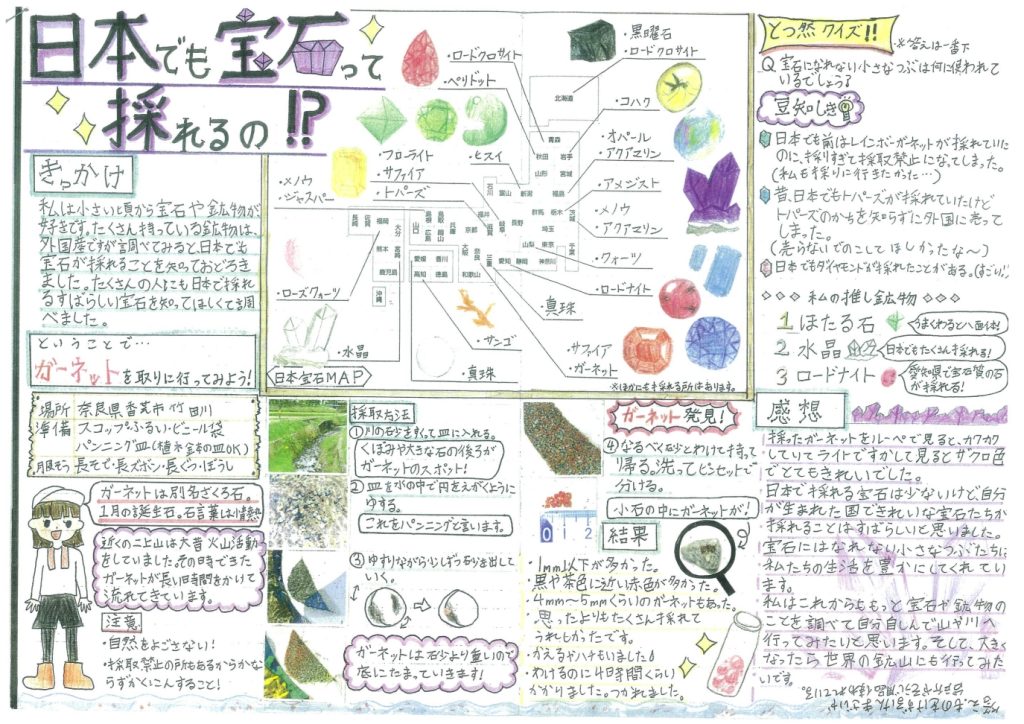 日本でも宝石って
採れるの!?
きっかけ
私は小さい頃から宝石や鉱物が
好きです。たくさん持っている鉱物は、
外国産ですが調べてみると日本でも
宝石が採れることを知っておどろき
ました。たくさんの人にも日本で採れ
るすばらしい宝石を知ってほしくて調
べました。
ということで…
ガーネットを取りに行ってみよう!
・ロードクロサイト
・ペリドット
・黒曜石
・ロードクロサイト
・コハク
・オパール
・アクアマリン
・アメジスト
・メノウ
・アクアマリン
・クォーツ
・ロードナイト
・真珠
・サファイア
・ガーネット
・フローライト
・サファイア
・トパーズ
・ヒスイ
・メノウ
・ジャスパー
・ローズクォーツ
・水晶
・サンゴ
・真珠
北海道
青森
秋田 岩手
山形 宮城
石川 富山 新潟 福島
群馬 栃木 茨城
長野 埼玉
山梨 東京 千葉
愛知 静岡 神奈川
福井 岐阜
京都 滋賀
大阪 奈良 三重
和歌山
兵庫
鳥取 岡山
島根 広島
山口
愛媛 香川
高知 徳島
長崎 佐賀 福岡
大分
熊本 宮崎
鹿児島
沖縄
日本宝石MAP
※ほかにも採れる所はあります。
とつ然クイズ!!
※答えは一番下
Q 宝石になれない小さなつぶは何に使われて
いるでしょう?
豆知しき
日本でも前はレインボーガーネットが採れていた
のに、採りすぎて採取禁止になってしまった。
(私も採りに行きたかった…)
昔、日本でもトパーズが採れていたけど
トパーズのかちを知らずに外国に売って
しまった。
(売らないでのこしてほしかったな～)
日本でもダイヤモンドが採れたことがある。(すごい!)
◇◇◇ 私の推し鉱物 ◇◇◇
1 ほたる石
うまくわると八面体!
2 水晶
日本でもたくさん採れる!
3 ロードナイト
愛知県で宝石質の石
が採れる!
場所 奈良県香芝市竹田川
準備 スコップ・ふるい・ビニール袋
パンニング皿(植木金本の皿OK)
服そう 長そで・長ズボン・長ぐつ・ぼうし
ガーネットは別名ざくろ石。
1月の誕生石。石言葉は情熱
近くの二上山は大昔火山活動
をしていました。その時できた
ガーネットが長い時間をかけて
流れてきています。
注意
・自然をよごさない!
・採取禁止の所もあるからかな
らずかくにんすること!
採取方法
①川の砂をすくって皿に入れる。
くぼみや大きな石の後ろが
ガーネットのスポット!
②皿を水の中で円をえがくように
ゆする。
これをパンニングと言います。
③ゆすりながら少しずつ砂を出して
いく。
ガーネットは石少より重いので
底にたまっていきます!
ガーネット発見!
④なるべく砂とわけて持って
り帰る。洗ってピンセットで
分ける。
小石の中にガーネットが!
0 1 2
結果
・1mm以下が多かった。
・黒や茶色に近い赤色が多かった。
・4mm～5mmくらいのガーネットもあった。
・思ったよりもたくさん採れて
うれしかったです。
・かえるやハチもいました!
・わけるのに4時間くらい
かかりました。つかれました。
感想
採ったガーネットをルーペで見ると、カクカク
していてライトですかして見るとザクロ色
でとてもきれいでした。
日本で採れる宝石は少ないけど自分
が生まれた国できれいな宝石たちが
採れることはすばらしいと思いました。
宝石にはなれない小さなつぶたちは
私たちの生活を豊かにしてくれてい
ます。
私はこれからももっと宝石や鉱物の
ことを調べて自分自しんで山や川へ
行ってみたいと思います。そして、大きく
なったら世界の鉱山にも行ってみた
いです。